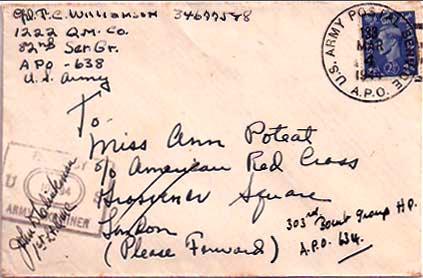 T. C. WILLIAMSON
1222 Q.M. Co.
82nd Ser. Gr.
APO - 638
U.S. Army
U.S. ARMY POSTAL SERVICE
MAR
4
A.P.O.
To
Miss Ann Poteat
c/o American Red Cross
Grosvener Square
London
(Please Forward)
303rd Bomb Group HP.
A.P.O. 634.
U S
ARMY EXAMINER